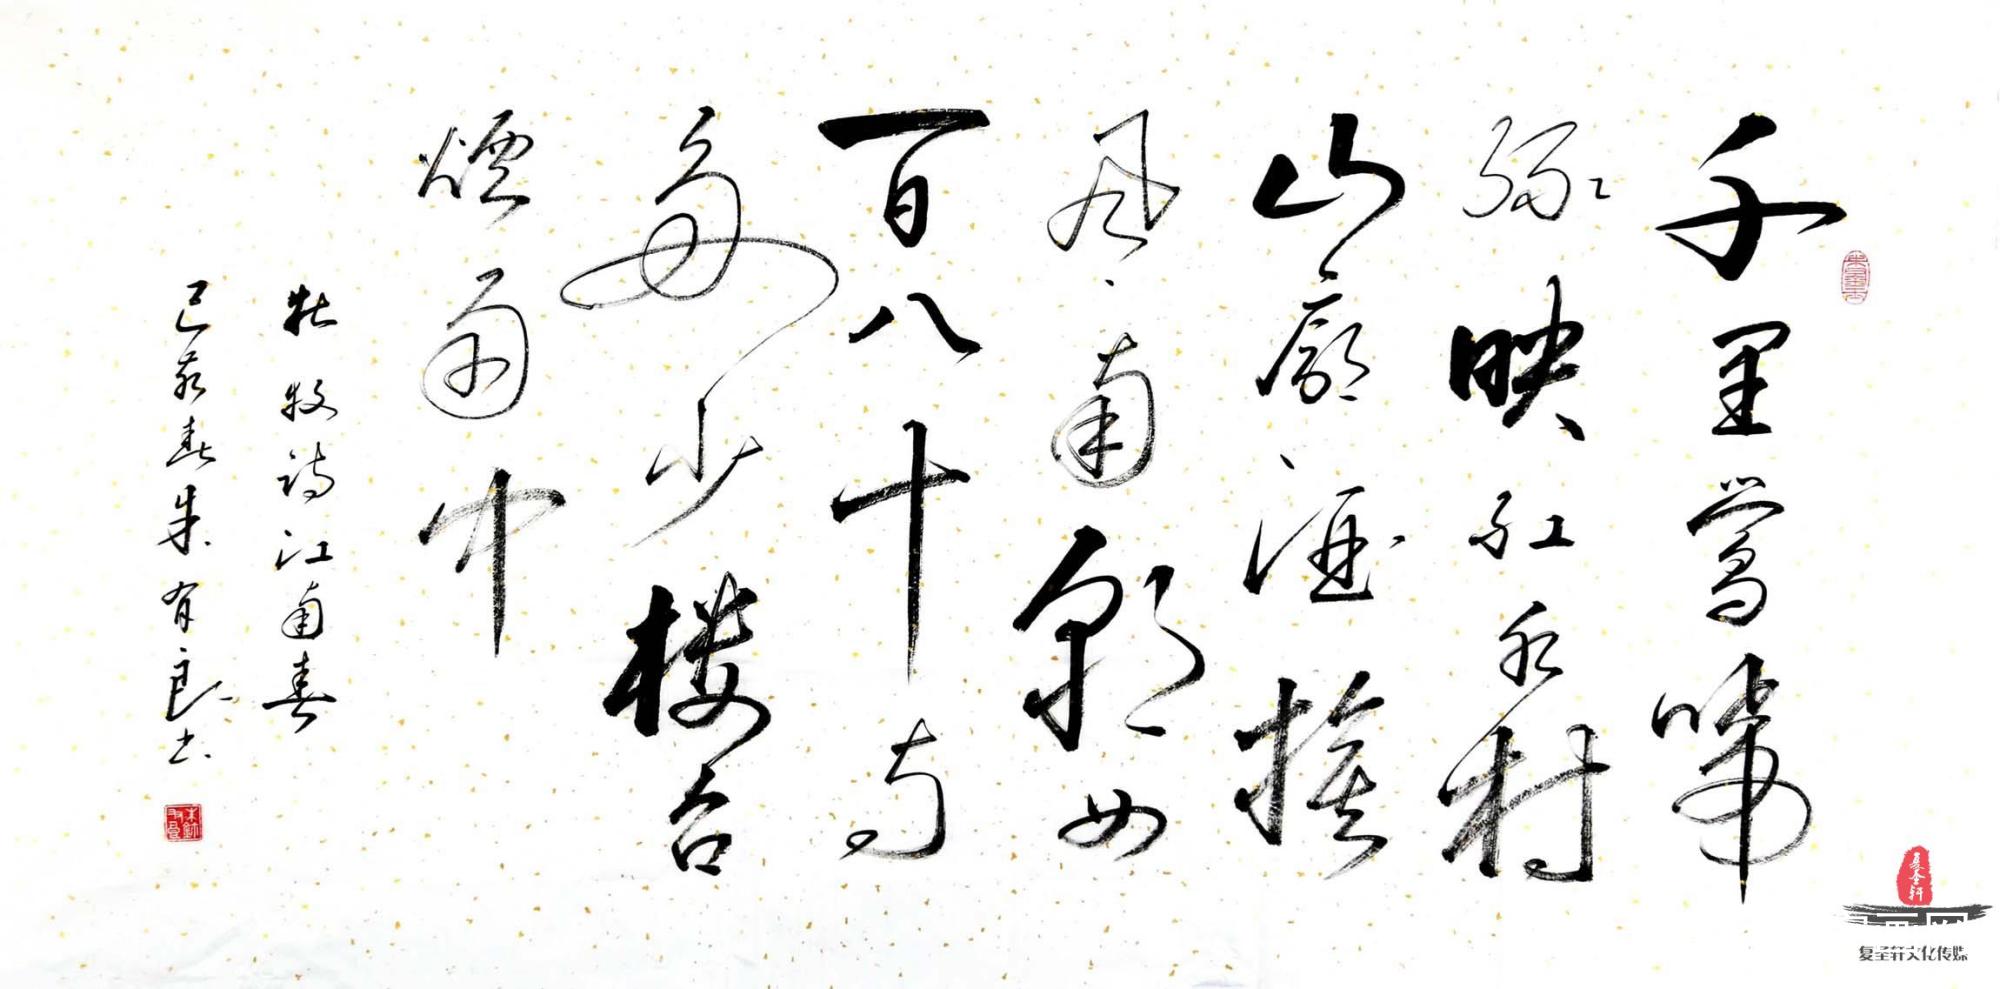 千里鶯啼
绿映红水村
山廓酒旗
风南朝四
百八十寺
多少楼台
煙雨中
杜牧诗江南春
己亥春朱有良书
复圣轩
复圣轩文化传媒